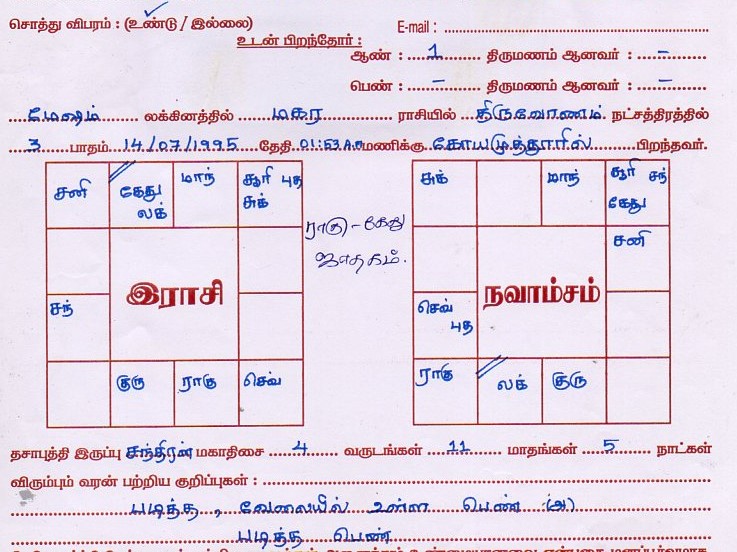 சொத்து விபரம் : (உண்டு / இல்லை) E-mail :
உடன் பிறந்தோர் :
ஆண் : 1 திருமணம் ஆனவர் : -
பெண் : - திருமணம் ஆனவர் : -
மேஷம் லக்கினத்தில் மகர ராசியில் திருவோணம் நட்சத்திரத்தில்
3 பாதம் 14/07/1995 தேதி 01:53 A.M மணிக்கு கோயமுத்தூரில் பிறந்தவர்.
சனி கேது மாந் சூரி புத சுக் மாந் சூரி சந்
லக் சுக் கேது
ராகு - கேது சனி
ஜாதகம்.
இராசி நவாம்சம்
சந் செவ்
புத
குரு ராகு செவ் ராகு லக் குரு
தசாபுத்தி இருப்பு சந்திரன் மகாதிசை 4 வருடங்கள் 11 மாதங்கள் 5 நாட்கள்
விரும்பும் வரன் பற்றிய குறிப்புகள் :
படித்த, வேலையில் உள்ள பெண் (அ)
படித்த பெண்